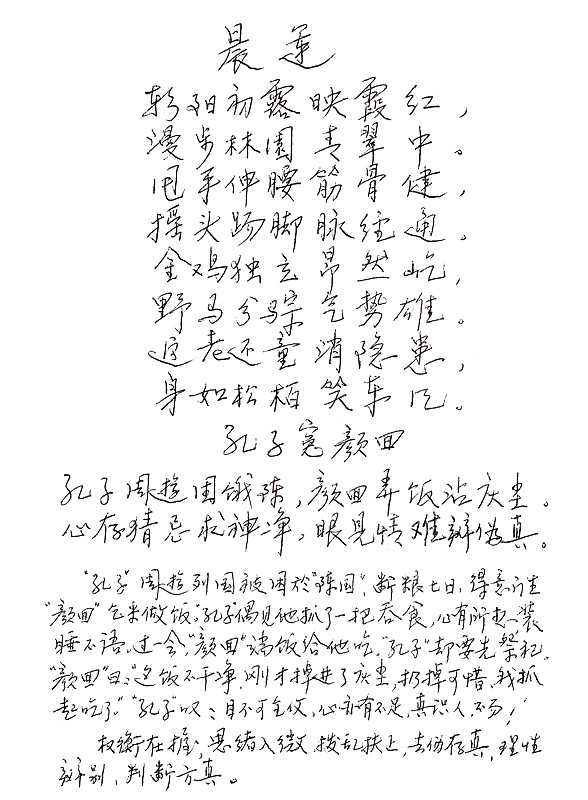 晨莲
朝阳初露映霞红，
漫步林园青翠中。
甩手伸腰筋骨健，
摇头踢脚脉经通。
金鸡独立昂然屹，
野马分鬃气势雄。
返老还童消隐患，
身如松柏笑东风。
孔子冤颜回
孔子周游困饿陈，颜回弄饭沾灰尘。
心存猜忌求神净，眼见情难辨伪真。
“孔子”周游列国被困於“陈国”，断粮七日，得意门生
“颜回”乞米做饭。“孔子”偶见他抓了一把吞食，心有所想，装
睡不语。过一会，“颜回”端饭给他吃，“孔子”却要先祭祀。
“颜回”曰：“这饭不干净，刚才掉进了灰尘，扔掉可惜，我抓
起吃了”“孔子”叹：目不可全仗，心亦有不足，真识人，不易！
权衡在握，思绪入微，拨乱扶正，去伪存真，理性
辨别，判断方真。